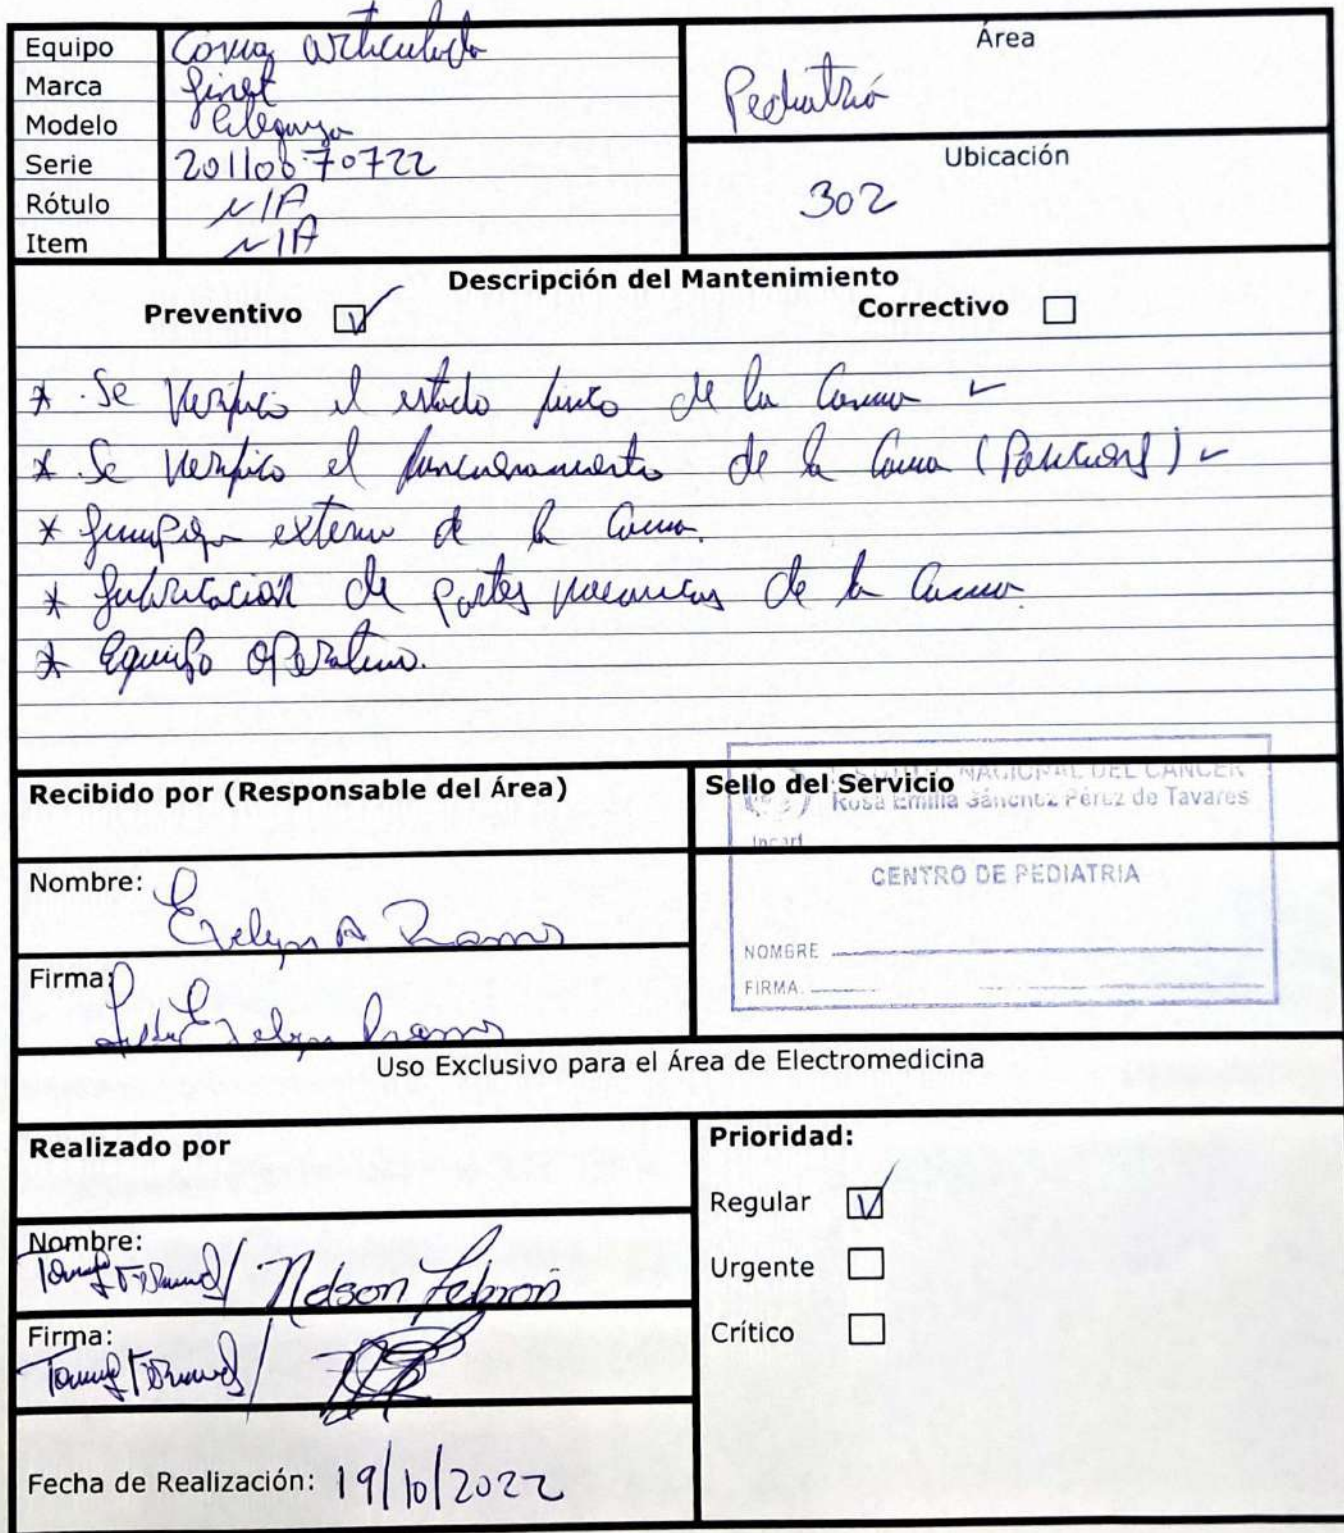 Equipo Cama articulada
Marca Linet
Modelo Eleganza
Serie 20110670722
Rótulo N/A
Item N/A
Área
Pediatría
Ubicación
302
Descripción del Mantenimiento
Preventivo Correctivo
* Se Verifico el estado fisico de la Cama ✓
* Se Verifico el funcionamiento de la Cama (Posiciones) ✓
* Limpieza externa de la Cama.
* Lubricación de partes mecanicas de la Cama.
* Equipo Operativo.
Recibido por (Responsable del Área)
Sello del Servicio
NACIONAL DEL CANCER
Rosa Emilia Sánchez Pérez de Tavares
Incart
CENTRO DE PEDIATRIA
NOMBRE
FIRMA.
Nombre: Evelyn A Ramos
Firma: Evelyn Ramos
Uso Exclusivo para el Área de Electromedicina
Realizado por
Nombre:
/ Nelson Lebron
Firma:
Fecha de Realización: 19/10/2022
Prioridad:
Regular
Urgente
Crítico